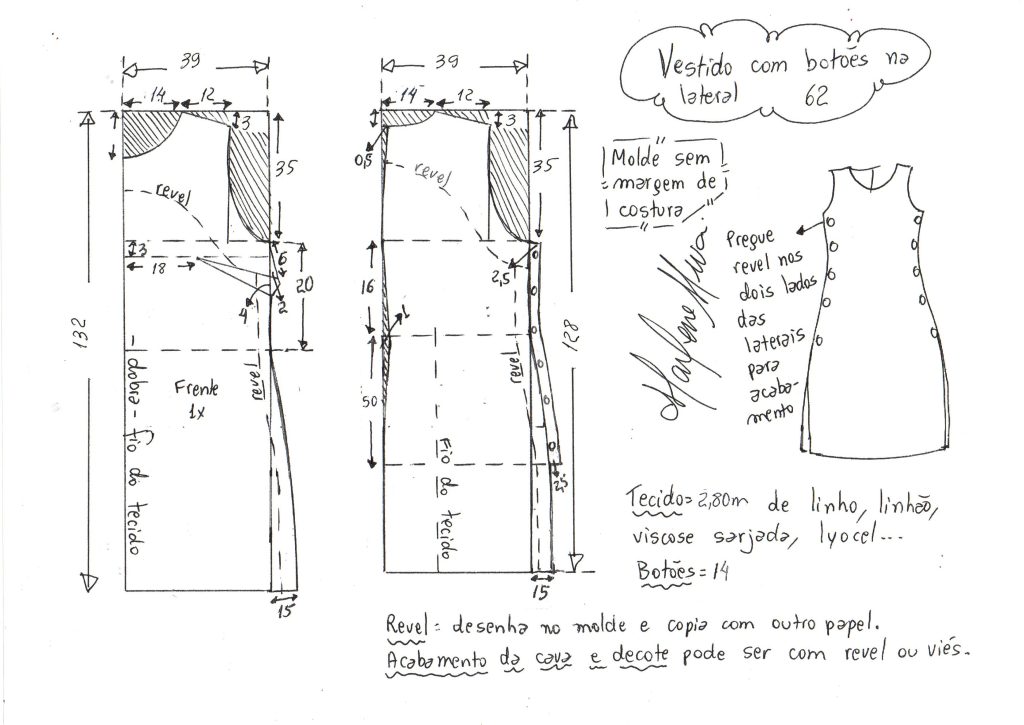 Vestido com botões na
lateral 62
39
14 12
3
35
revel
3
18
6
20
2
4
132
Frente
1x
revel
dobra - fio do tecido
15
39
14 12
3
0,5
35
revel
2,5
16
1
50
revel
128
Fio do tecido
2,5
15
Molde sem
margem de
costura
Marlene Mukai
Pregue
revel nos
dois lados
das
laterais
para
acaba-
mento
Tecido= 2,80m de linho, linhão,
viscose sarjada, lyocel...
Botões= 14
Revel= desenha no molde e copia com outro papel.
Acabamento da cava e decote pode ser com revel ou viés.